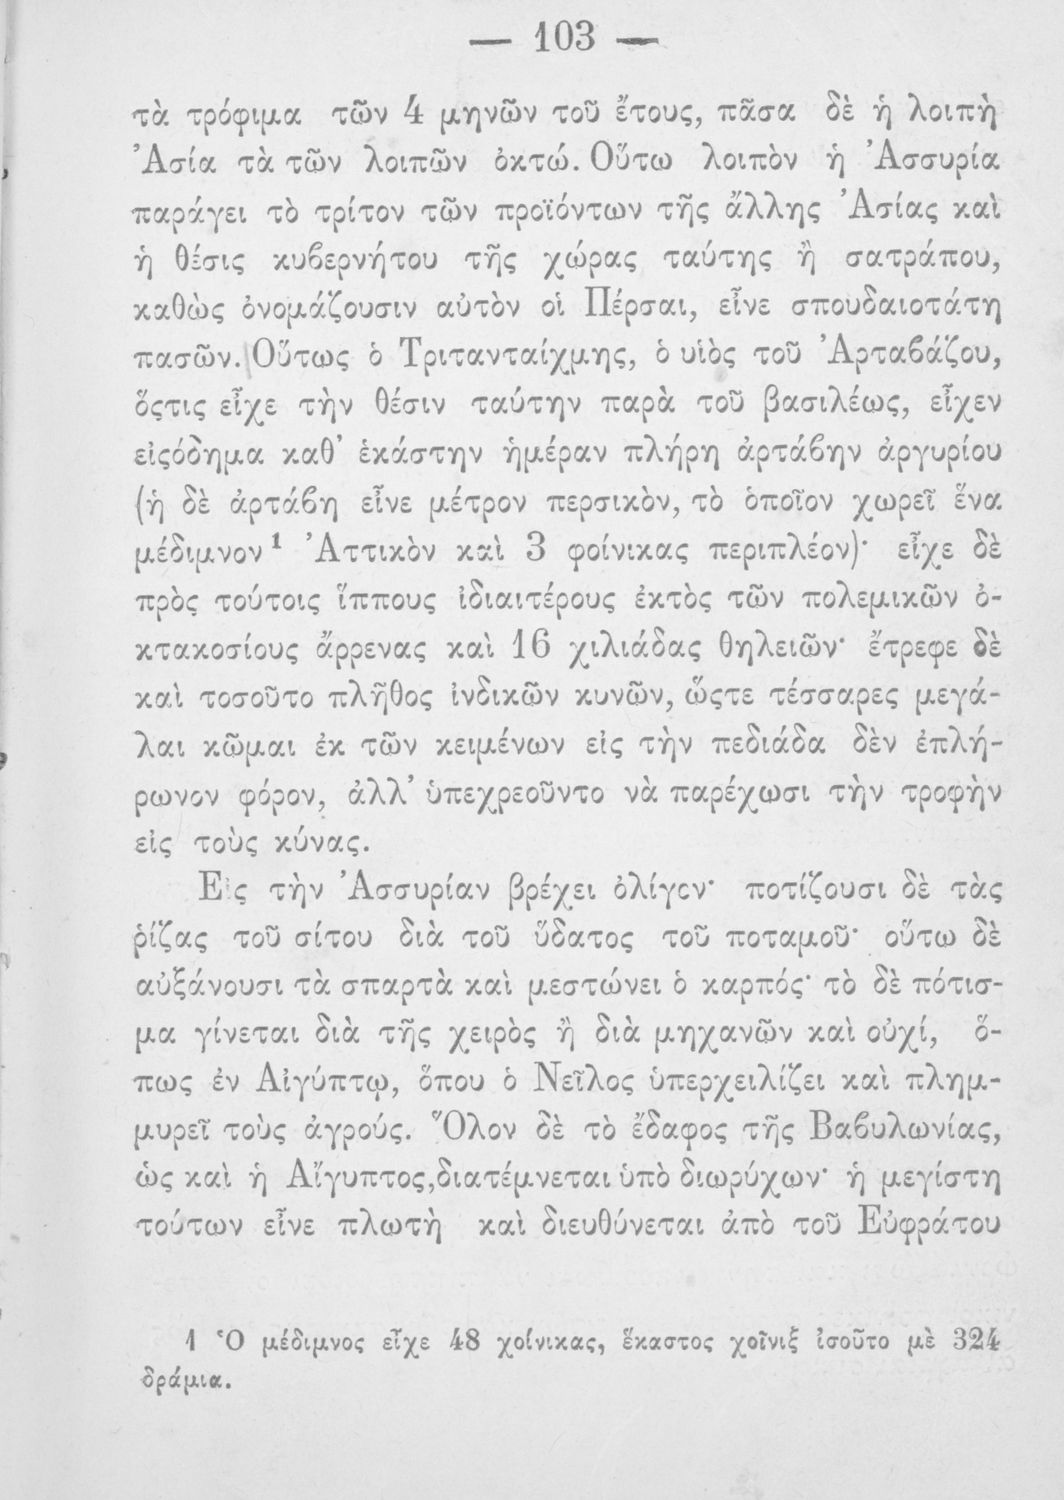 — 103 —
τὰ τρόφιμα τῶν 4 μηνῶν τοῦ ἔτους, πᾶσα δὲ ἡ λοιπὴ
Ἀσία τὰ τῶν λοιπῶν ὀκτώ. Οὕτω λοιπὸν ἡ Ἀσσυρία
παράγει τὸ τρίτον τῶν προϊόντων τῆς ἄλλης Ἀσίας καὶ
ἡ θέσις κυβερνήτου τῆς χώρας ταύτης ἢ σατράπου,
καθὼς ὀνομάζουσιν αὐτὸν οἱ Πέρσαι, εἶνε σπουδαιοτάτη
πασῶν. Οὕτως ὁ Τριτανταίχμης, ὁ υἱὸς τοῦ Ἀρταβάζου,
ὅςτις εἶχε τὴν θέσιν ταύτην παρὰ τοῦ βασιλέως, εἶχεν
εἰςόδημα καθ’ ἑκάστην ἡμέραν πλήρη ἀρτάβην ἀργυρίου
(ἡ δὲ ἀρτάβη εἶνε μέτρον περσικὸν, τὸ ὁποῖον χωρεῖ ἕνα
μέδιμνον¹ Ἀττικὸν καὶ 3 φοίνικας περιπλέον)· εἶχε δὲ
πρὸς τούτοις ἵππους ἰδιαιτέρους ἐκτὸς τῶν πολεμικῶν ὀ-
κτακοσίους ἄρρενας καὶ 16 χιλιάδας θηλειῶν· ἔτρεφε δὲ
καὶ τοσοῦτο πλῆθος ἰνδικῶν κυνῶν, ὥςτε τέσσαρες μεγά-
λαι κῶμαι ἐκ τῶν κειμένων εἰς τὴν πεδιάδα δὲν ἐπλή-
ρωνον φόρον, ἀλλ’ ὑπεχρεοῦντο νὰ παρέχωσι τὴν τροφὴν
εἰς τοὺς κύνας.
Εἰς τὴν Ἀσσυρίαν βρέχει ὀλίγον· ποτίζουσι δὲ τὰς
ῥίζας τοῦ σίτου διὰ τοῦ ὕδατος τοῦ ποταμοῦ· οὕτω δὲ
αὐξάνουσι τὰ σπαρτὰ καὶ μεστώνει ὁ καρπός· τὸ δὲ πότισ-
μα γίνεται διὰ τῆς χειρὸς ἢ διὰ μηχανῶν καὶ οὐχί, ὅ-
πως ἐν Αἰγύπτῳ, ὅπου ὁ Νεῖλος ὑπερχειλίζει καὶ πλημ-
μυρεῖ τοὺς ἀγρούς. Ὅλον δὲ τὸ ἔδαφος τῆς Βαβυλωνίας,
ὡς καὶ ἡ Αἴγυπτος, διατέμνεται ὑπὸ διωρύχων· ἡ μεγίστη
τούτων εἶνε πλωτὴ καὶ διευθύνεται ἀπὸ τοῦ Εὐφράτου
1 Ὁ μέδιμνος εἶχε 48 χοίνικας, ἕκαστος χοῖνιξ ἰσοῦτο μὲ 324
δράμια.